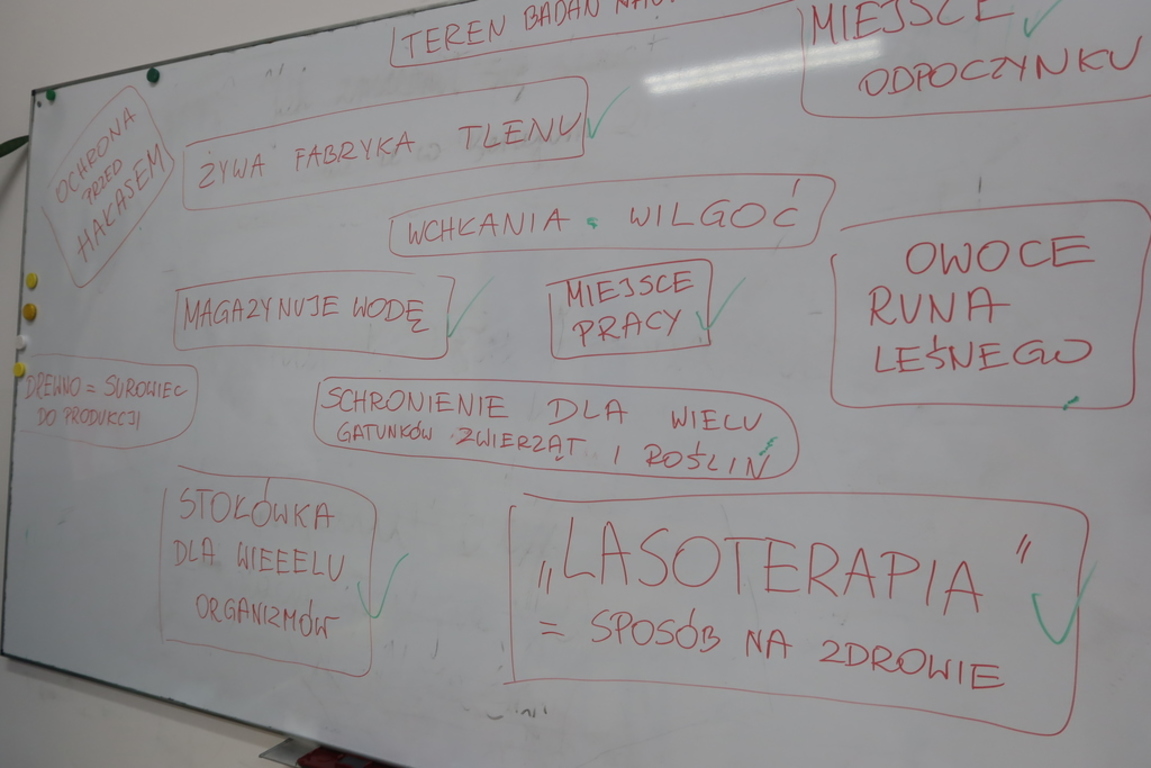 TEREN BADAŃ
MIEJSCE
ODPOCZYNKU
OCHRONA
PRZED
HAŁASEM
ŻYWA FABRYKA TLENU
WCHŁANIA WILGOĆ
MAGAZYNUJE WODĘ
MIEJSCE
PRACY
OWOCE
RUNA
LEŚNEGO
DREWNO = SUROWIEC
DO PRODUKCJI
SCHRONIENIE DLA WIELU
GATUNKÓW ZWIERZĄT I ROŚLIN
STOŁÓWKA
DLA WIEEELU
ORGANIZMÓW
„LASOTERAPIA"
= SPOSÓB NA ZDROWIE